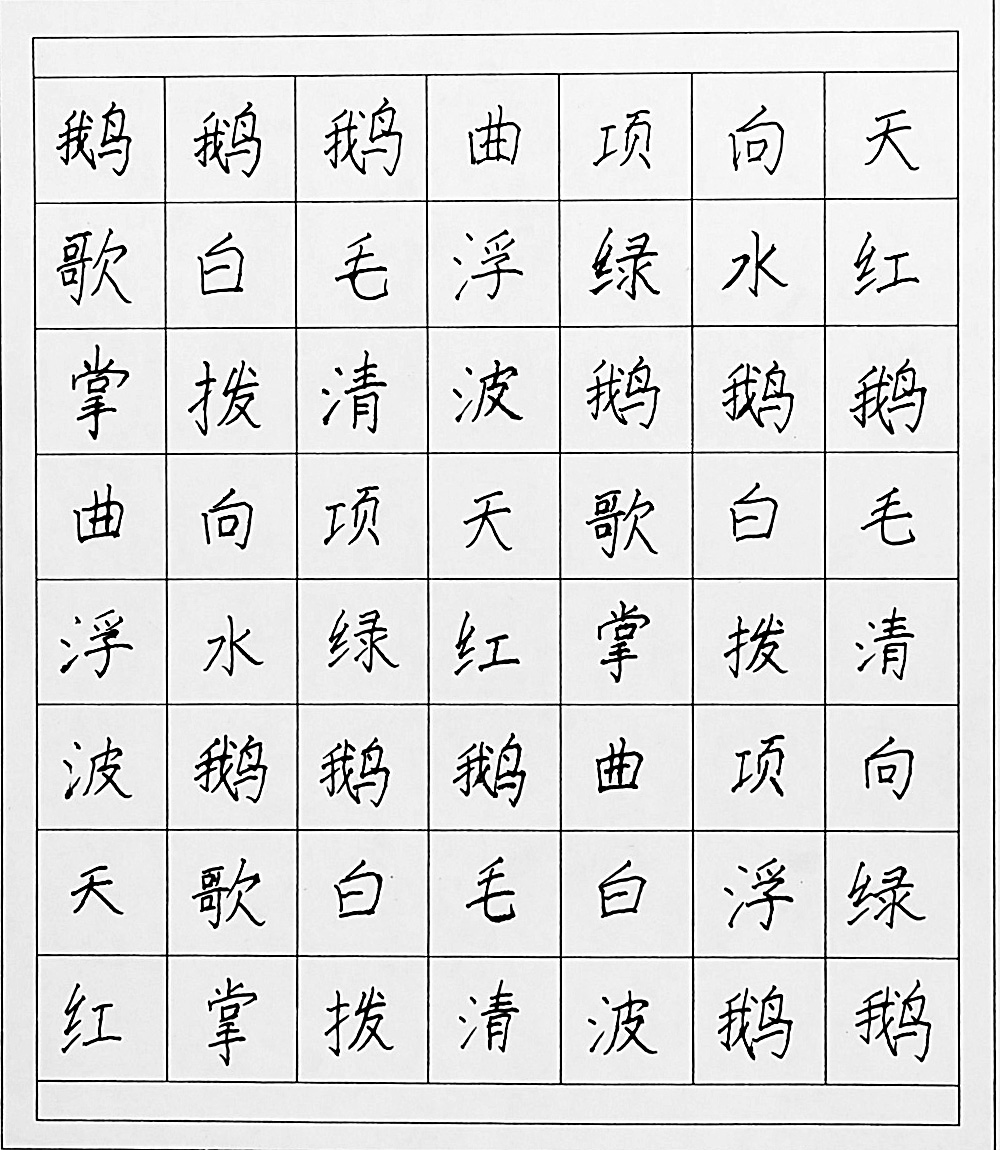 鹅鹅鹅曲项向天
歌白毛浮绿水红
掌拨清波鹅鹅鹅
曲向项天歌白毛
浮水绿红掌拨清
波鹅鹅鹅曲项向
天歌白毛白浮绿
红掌拨清波鹅鹅